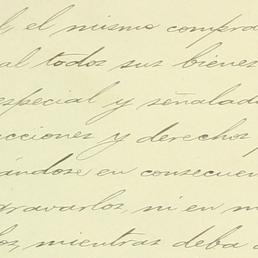 l, el mismo compra
al todos sus bienes
especial y señalada
cciones y derechos
ándose en consecuen
gravarlos, ni en m
los, mientras deba